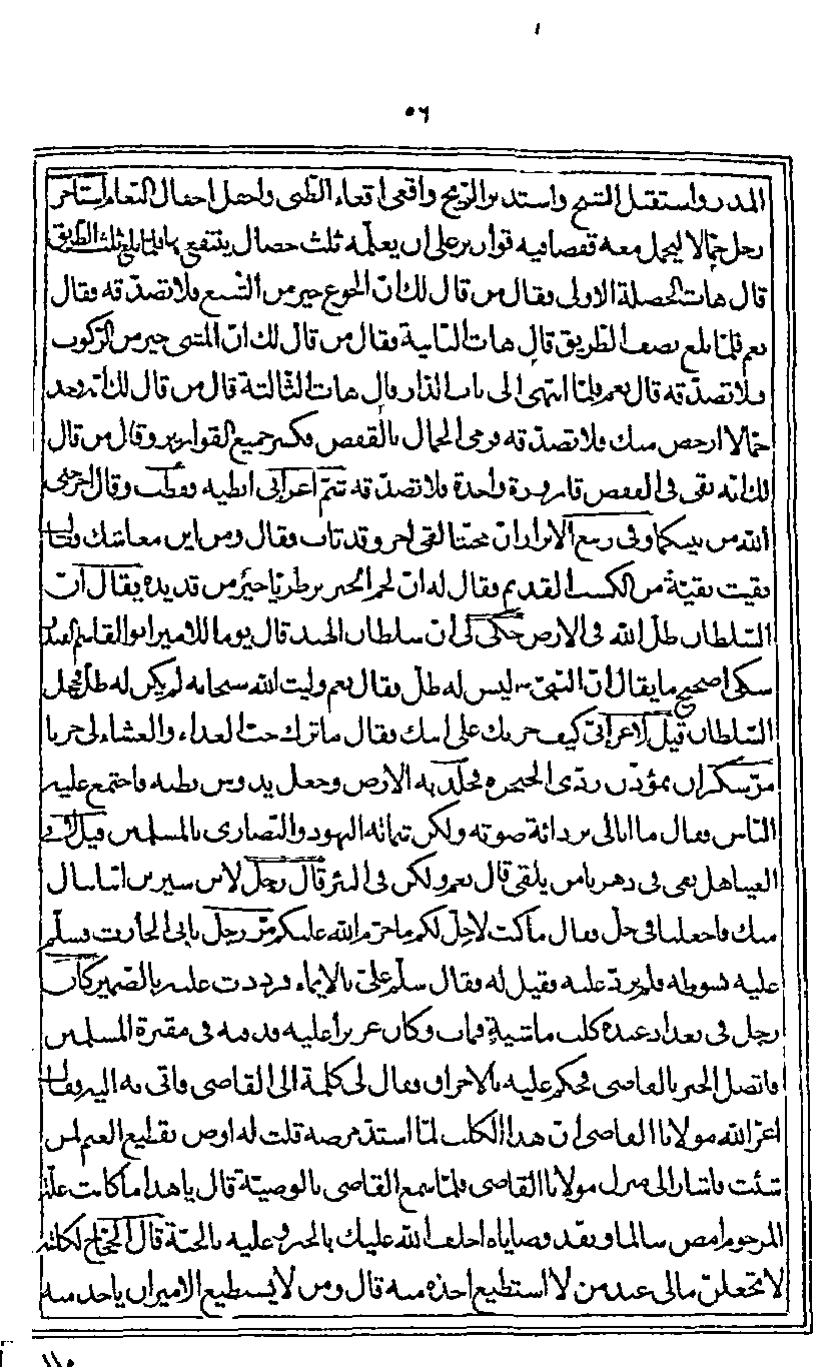 ٥٦
المدر واستقبل الشيح واستدبر الريح واقعى اقعاء الظبى واجفل اجفال النعام استاجر
رجل حمّالا ليحمل معه قفصا فيه قوارير على ان يعلّمه ثلث خصال ينتفع بها فلمّا بلغ ثلث الطريق
قال هات الخصلة الاولى فقال من قال لك انّ الجوع خير من الشبع فلا تصدّقه فقال
نعم فلمّا بلغ نصف الطريق قال هات الثانية فقال من قال لك انّ المشى خير من الركوب
فلا تصدّقه قال نعم فلمّا انتهى الى باب الدار قال هات الثالثة قال من قال لك انّه يوجد
حمّالا ارخص منك فلا تصدّقه فرمى الحمال بالقفص فكسر جميع القوارير وقال من قال
لك انّه بقى فى القفص قارورة واحدة فلا تصدّقه شمّ اعرابى ابطيه فقطّب وقال اخرجنى
الله من بينكما وفى ربيع الابرار انّ مخنّثا لقى اخر وقد تاب فقال ومن اين معاشك فقال
بقيت بقيّة من الكسب القديم فقال له انّ لحم الخنزير طريّا خير من قديده يقال انّ
السّلطان ظلّ الله فى الارض حكى لى انّ سلطان الهند قال يوما للامير ابو القاسم
سكى اصحيح ما يقال انّ النبىّ ص ليس له ظل فقال نعم وليت الله سبحانه لم يكن له ظلّ فخجل
السّلطان قيل لاعرابىّ كيف حزنك على ابنك فقال ما ترك حبّ الغداء والعشاء لى حزنا
مرّ سكران بمؤذّن ردّى الحنجرة فجلد به الارض وجعل يدوس بطنه فاجتمع عليه
الناس فقال ما ابالى برداءة صوته ولكن شماتة اليهود والنصارى بالمسلمين قيل لابى
العيناء هل بقى فى دهرنا من يلقى قال نعم ولكن فى البئر قال رجل لابن سيرين انّا ننال
منك فاجعلنا فى حلّ فقال ما كنت لاحلّ لكم ما حرّم الله عليكم مرّ رجل بابى الحارث فسلّم
عليه بسوطه فلم يردّ عليه فقيل له فقال سلّم علىّ بالايماء فرددت عليه بالضمير كان
رجل فى بغداد عنده كلب ماشية فمات وكان عزيزا عليه فدفنه فى مقبرة المسلمين
فاتصل الخبر بالقاضى فحكم عليه بالاحراق فقال لى كلمة الى القاضى فاتى به اليه وقال
اعزّ الله مولانا القاضى انّ هذا الكلب لمّا استدّ مرضه قلت له اوص بقطيع الغنم لمن
شئت فاشار الى منزل مولانا القاضى فلمّا سمع القاضى بالوصيّة قال يا هذا ما كانت علّة
المرحوم امض سالما ونفذ وصاياه اخلف الله عليك بالخير وعليه بالجنّة قال الحجّاج لكاتبه
لا تجعلنّ مالى عند من لا استطيع اخذه منه قال ومن لا يستطيع الامير ان ياخذ منه